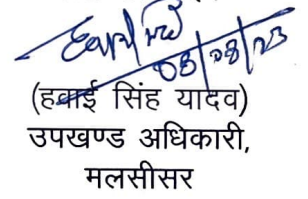 08/08/23
(हवाई सिंह यादव)
उपखण्ड अधिकारी,
मलसीसर